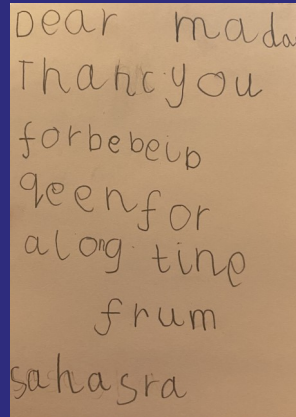 Dear mada
Thancyou
forbebeib
qeenfor
along tine
frum
sahasra